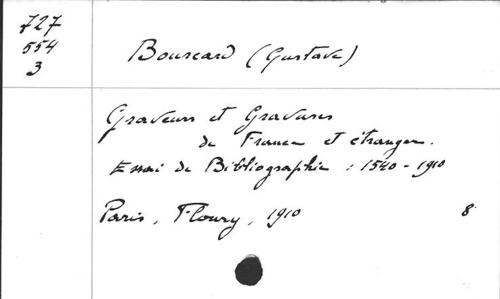 727
554
3
Bourcard (Gustave)
Graveurs et Gravures
de France et étranger.
Essai de Bibliographie : 1540 - 1910
Paris, Floury, 1910 8°